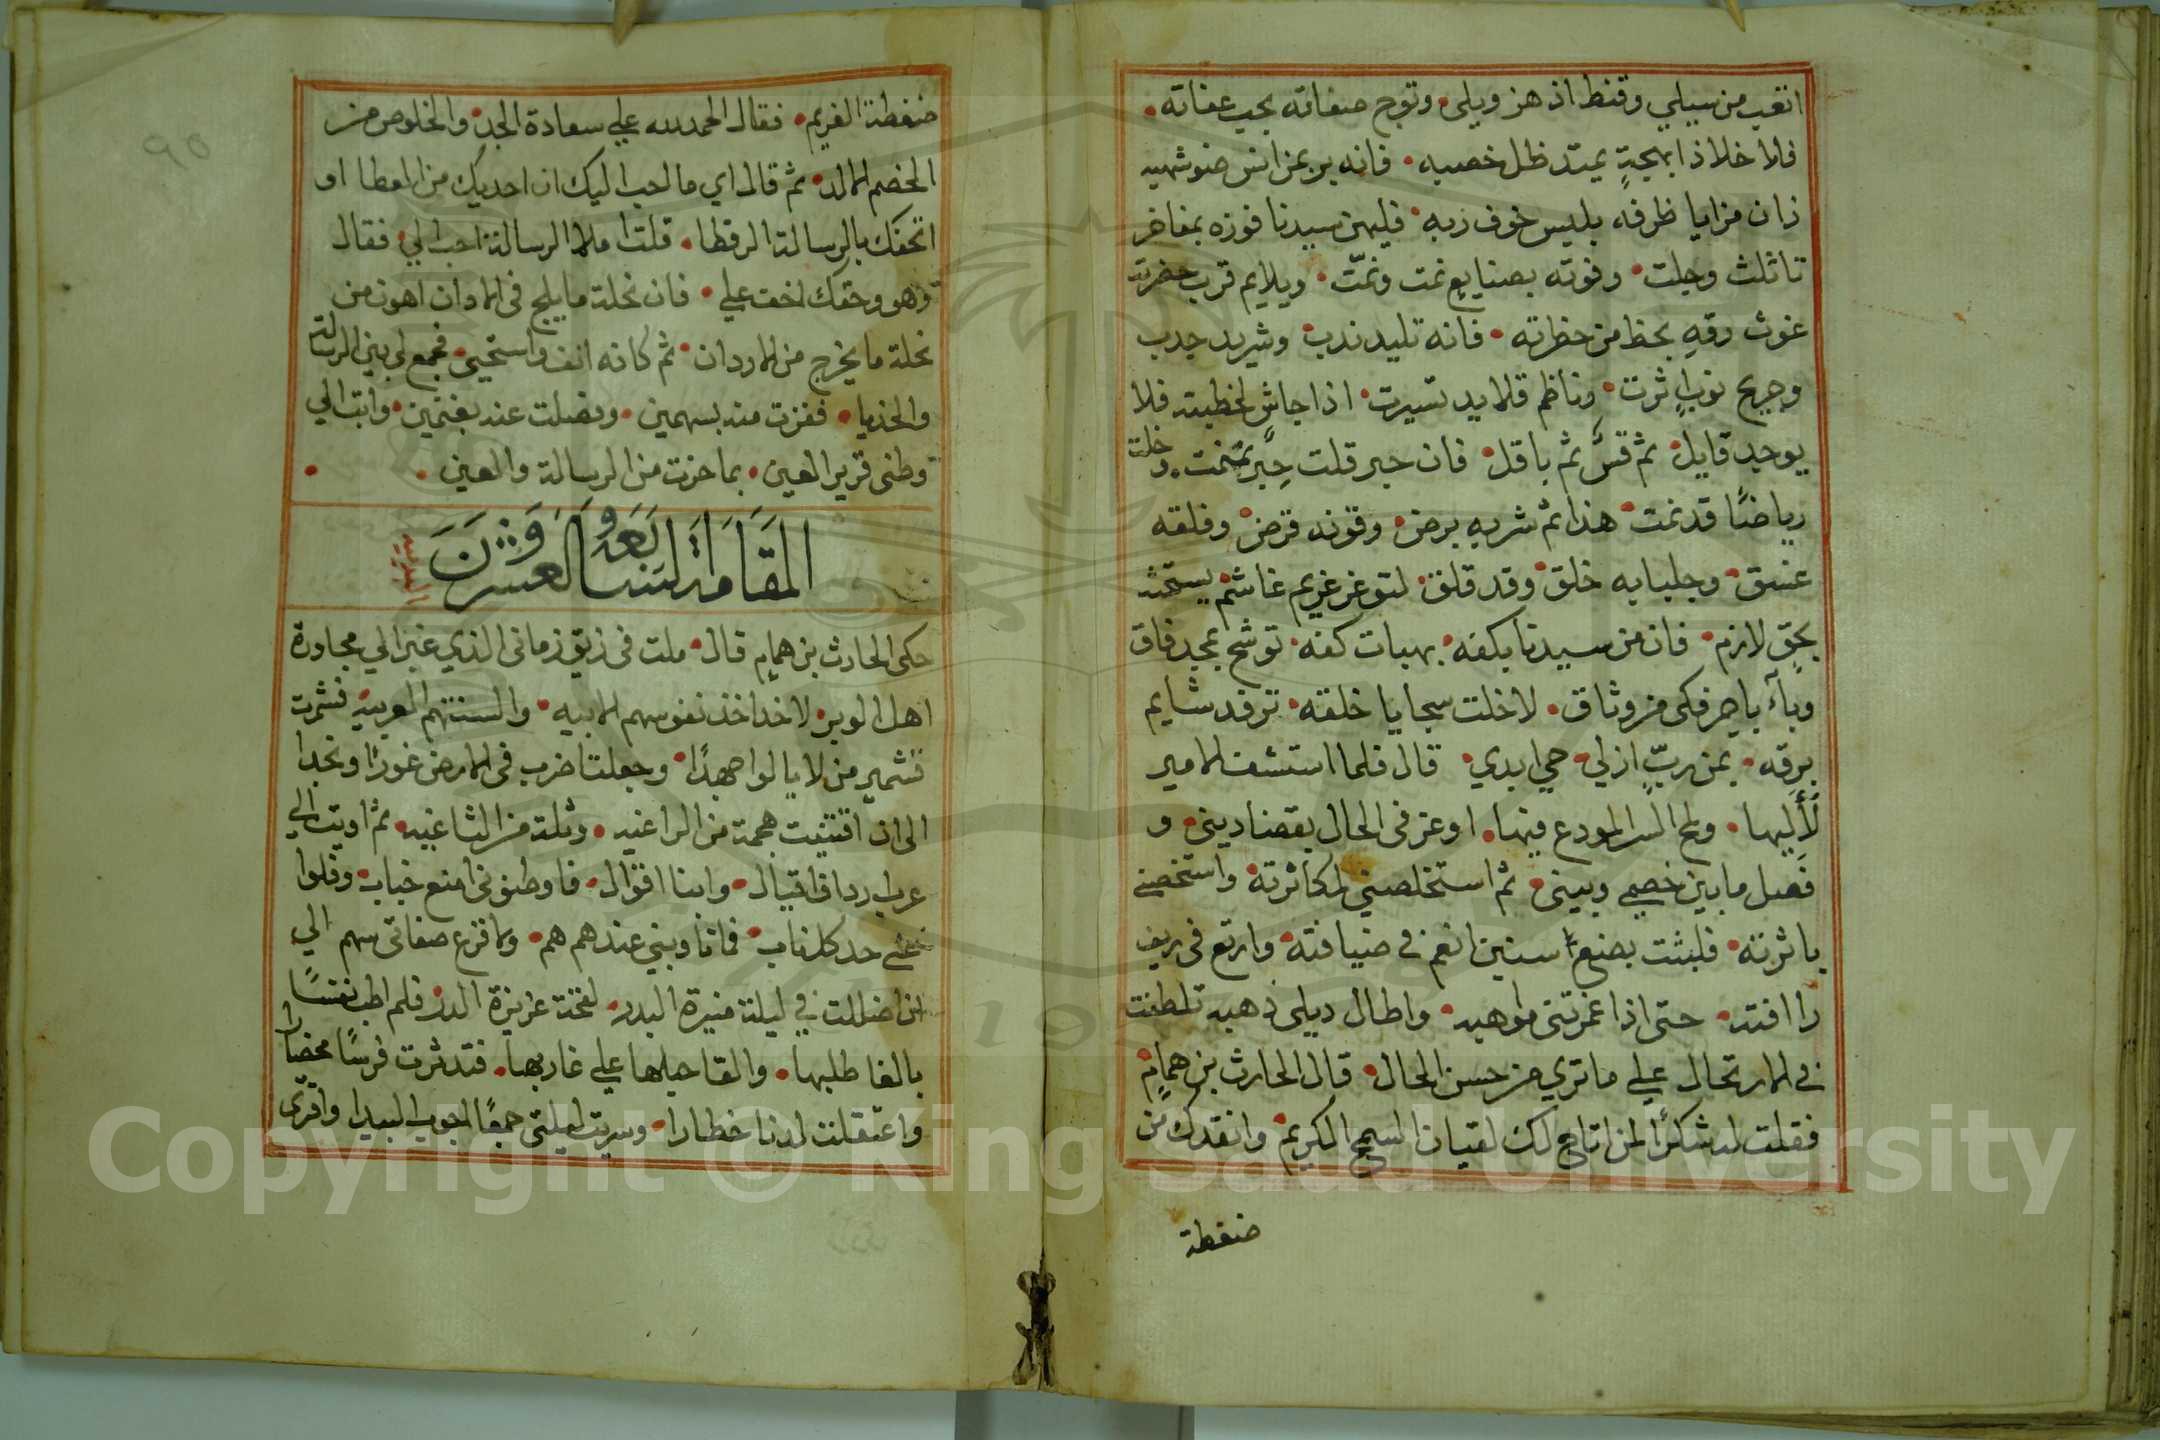 اتعب من سيلي وقنط اذ هز ويلي وتوج صفاته بحب عفاته
فلا خلا ذا بهجة يمتد ظل خصبه فانه بر بمن انس ضو شهبه
زان مزايا ظرفه بلبس خوف ربه فليهن سيدنا فوزه بمفاخر
تاثلت وجلت وفوته بصنايع نمت ونمّت ويلايم قرب حضرته
غوث رقه بحظ من حظوته فانه تليد ندب وشريد جدب
وجريح نوب اثرت وناظم قلايد تسيرت اذا جاش لخطبته فلا
يوجد قايل ثم قسّ ثم باقل فان حبر قلت حِبَر نمنمت وخلت
رياضًا قد نمت هذا ثم شربه برض وقوته قرض وفلقه
غسق وجلبابه خلق وقد قلق لتوغر غريم غاشم يستحثه
بحق لازم فان من سيدنا بكفه بهبات كفه توشح بمجد فاق
وبآء باجر فكى من وثاق لا خلت سجايا خلقه ترفد شايم
برقه بمن ربّ ازلي حي ابدي قال فلما استشف الامير
لأليها ولمح السر المودع فيها اوعز في الحال بقضا ديني و
فصل ما بين خصمي وبيني ثم استخلصني لمكاثرته واستخصني
باثرته فلبثت بضع سنين انعم في ضيافته وارتع في ريف
رافته حتى اذا غمرتني مواهبه واطال ذيلي ذهبه تلطفت
في الارتحال علي ما تري من حسن الحال قال الحارث بن همام
فقلت له شكرًا لمن اتاح لك لقيان السمح الكريم وانقدك من
ضغطة
ضغطة الغريم فقال الحمد لله علي سعادة الجد والخلوص من
الخصم الالد ثم قال اي ما احب اليك ان احذيك من العطا او
اتحفك بالرسالة الرقطا قلت املا الرسالة احب الي فقال
وهو وحقك اخف علي فان نحلة ما يلج في الاذان اهون من
نحلة ما يخرج من الاردان ثم كانه انف واستحيي فجمع لي بين الرسالة
والحذيا ففزت منه بسهمين وفصلت عنه بغنمين وابت الي
وطني قرير العين بما حزت من الرسالة والعين
المقامة السابعة والعشرون
حكى الحارث بن همام قال ملت في ريق زماني الذي غبر الي مجاورة
اهل الوبر لاخذ اخذ نفوسهم الابيه والسنتهم العربيه فشمرت
تشمير من لا يالوا جهدًا وجعلت اضرب في الارض غورًا ونجدا
الى ان اقتنيت هجمة من الراغيه وثلة من الثاغيه ثم اويت الي
عرب ارداف اقيال وابنا اقوال فاوطنوني امنع جناب وفلوا
عني حد كل ناب فما تاوبني عندهم هم ولا قرع صفاتي سهم الي
ان اضللت في ليلة منيرة البدر لقحة غزيرة الدر فلم اطب نفسًا
بالغا طلبها والقا حبلها علي غاربها فتدثرت فرسًا محضارا
واعتقلت لدنا خطارا وسريت ليلتي جمعًا اجوب البيدا واقترى